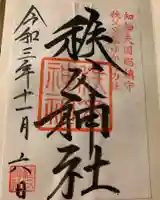 知知夫国総鎮守
秩父神社
令和三年十一月六日